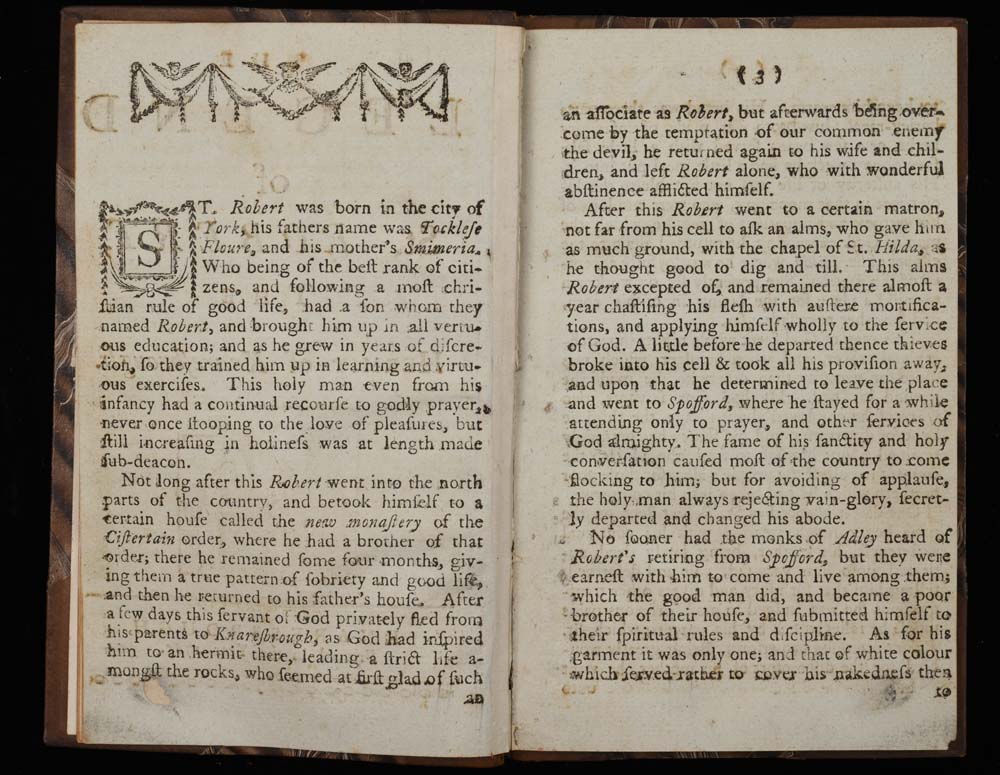 ST. Robert was born in the city of
York, his fathers name was Tocklese
Floure, and his mother's Smimeria.
Who being of the beſt rank of citi-
zens, and following a moſt chri-
ſtian rule of good life, had a ſon whom they
named Robert, and brought him up in all vertu-
ous education; and as he grew in years of diſcre-
tion, ſo they trained him up in learning and virtu-
ous exerciſes. This holy man even from his
infancy had a continual recourſe to godly prayer,
never once ſtooping to the love of pleaſures, but
ſtill increaſing in holineſs was at length made
ſub-deacon.
Not long after this Robert went into the north
parts of the country, and betook himſelf to a
certain houſe called the new monaſtery of the
Ciſtertain order, where he had a brother of that
order; there he remained ſome four months, giv-
ing them a true pattern of ſobriety and good life,
and then he returned to his father's houſe. After
a few days this ſervant of God privately fled from
his parents to Knareſbrough, as God had inſpired
him to an hermit there, leading a ſtrict life a-
mongſt the rocks, who ſeemed at firſt glad of ſuch
an
(3)
an aſſociate as Robert, but afterwards being over-
come by the temptation of our common enemy
the devil, he returned again to his wife and chil-
dren, and left Robert alone, who with wonderful
abſtinence afflicted himſelf.
After this Robert went to a certain matron,
not far from his cell to aſk an alms, who gave him
as much ground, with the chapel of St. Hilda, as
he thought good to dig and till. This alms
Robert excepted of, and remained there almoſt a
year chaſtiſing his fleſh with auſtere mortifica-
tions, and applying himſelf wholly to the ſervice
of God. A little before he departed thence thieves
broke into his cell & took all his proviſion away,
and upon that he determined to leave the place
and went to Spofford, where he ſtayed for a while
attending only to prayer, and other ſervices of
God almighty. The fame of his ſanctity and holy
converſation cauſed moſt of the country to come
flocking to him; but for avoiding of applauſe,
the holy man always rejecting vain-glory, ſecret-
ly departed and changed his abode.
No ſooner had the monks of Adley heard of
Robert's retiring from Spofford, but they were
earneſt with him to come and live among them;
which the good man did, and became a poor
brother of their houſe, and ſubmitted himſelf to
their ſpiritual rules and diſcipline. As for his
garment it was only one; and that of white colour
which ſerved rather to cover his nakedneſs then
to